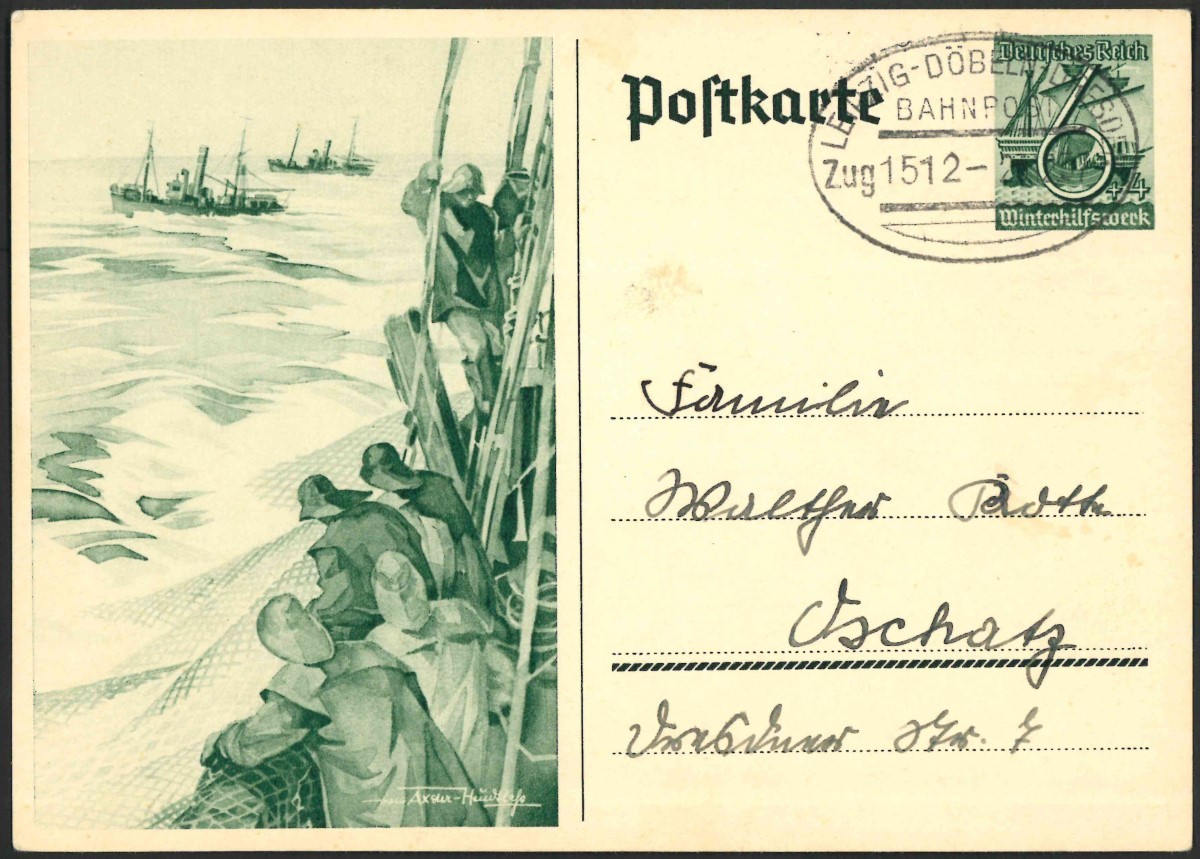 Postkarte
LEIPZIG-DÖBELN-DRESDEN
BAHNPOST
Zug 1512
Deutsches Reich
6
+4
Winterhilfswerk
Familie
Walther
Oschatz
Dresdner Str. 7
Axster-Heudtlaß